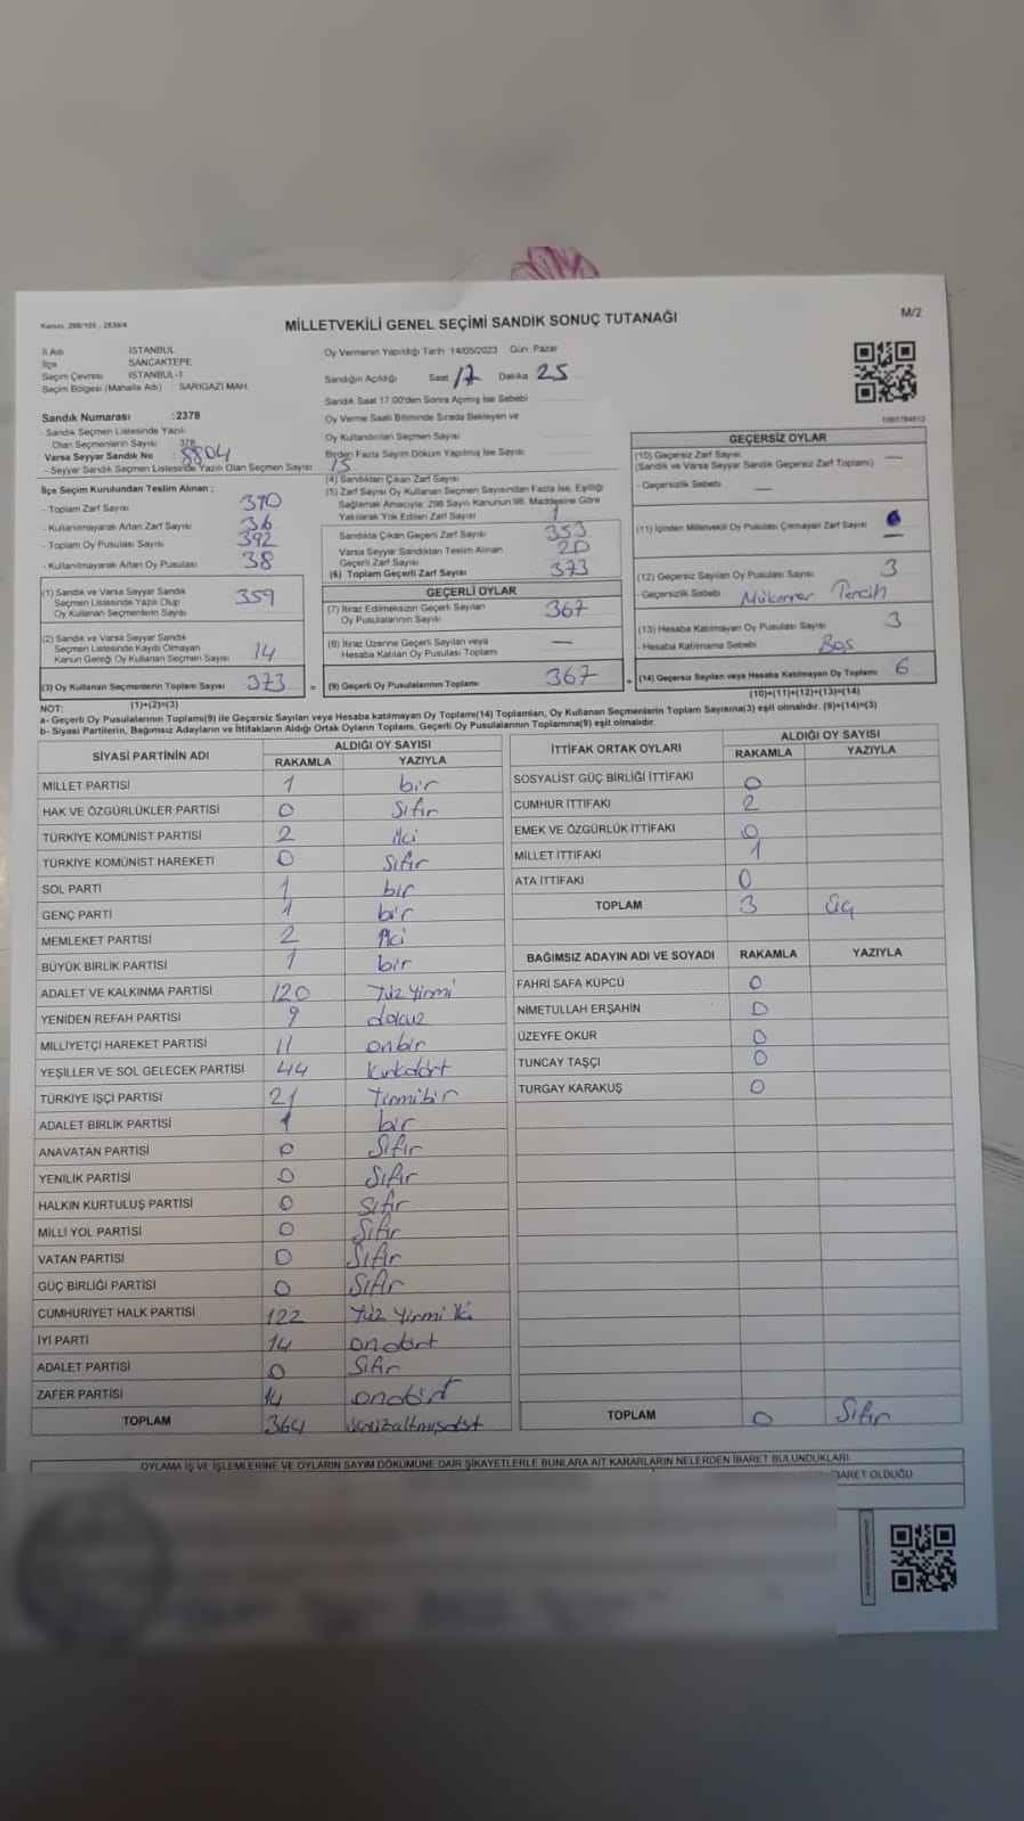 Kanun: 298/105 - 2839/4
MİLLETVEKİLİ GENEL SEÇİMİ SANDIK SONUÇ TUTANAĞI
M/2
İl Adı İSTANBUL
İlçe SANCAKTEPE
Seçim Çevresi İSTANBUL-1
Seçim Bölgesi (Mahalle Adı) SARIGAZİ MAH.
Sandık Numarası :2378
Sandık Seçmen Listesinde Yazılı
Olan Seçmenlerin Sayısı 378
Varsa Seyyar Sandık No 8804
- Seyyar Sandık Seçmen Listesinde Yazılı Olan Seçmen Sayısı 15
İlçe Seçim Kurulundan Teslim Alınan :
- Toplam Zarf Sayısı 390
- Kullanılmayarak Artan Zarf Sayısı 36
- Toplam Oy Pusulası Sayısı 392
- Kullanılmayarak Artan Oy Pusulası 38
(1) Sandık ve Varsa Seyyar Sandık
Seçmen Listesinde Yazılı Olup
Oy Kullanan Seçmenlerin Sayısı 359
(2) Sandık ve Varsa Seyyar Sandık
Seçmen Listesinde Kaydı Olmayan
Kanun Gereği Oy Kullanan Seçmen Sayısı 14
(3) Oy Kullanan Seçmenlerin Toplam Sayısı 373
(1)+(2)=(3)
Oy Vermenin Yapıldığı Tarih 14/05/2023 Gün: Pazar
Sandığın Açıldığı Saat 17 Dakika 25
Sandık Saat 17:00'den Sonra Açılmış İse Sebebi
Oy Verme Saati Bitiminde Sırada Bekleyen ve
Oy Kullandırılan Seçmen Sayısı
Birden Fazla Sayım Döküm Yapılmış İse Sayısı
(4) Sandıktan Çıkan Zarf Sayısı
(5) Zarf Sayısı Oy Kullanan Seçmen Sayısından Fazla İse, Eşitliği
Sağlamak Amacıyla; 298 Sayılı Kanunun 98. Maddesine Göre
Yakılarak Yok Edilen Zarf Sayısı 1
Sandıkta Çıkan Geçerli Zarf Sayısı 353
Varsa Seyyar Sandıktan Teslim Alınan
Geçerli Zarf Sayısı 20
(6) Toplam Geçerli Zarf Sayısı 373
GEÇERLİ OYLAR
(7) İtiraz Edilmeksizin Geçerli Sayılan
Oy Pusulalarının Sayısı 367
(8) İtiraz Üzerine Geçerli Sayılan veya
Hesaba Katılan Oy Pusulası Toplamı —
= (9) Geçerli Oy Pusulalarının Toplamı 367
GEÇERSİZ OYLAR
(10) Geçersiz Zarf Sayısı
(Sandık ve Varsa Seyyar Sandık Geçersiz Zarf Toplamı) —
- Geçersizlik Sebebi —
(11) İçinden Milletvekili Oy Pusulası Çıkmayan Zarf Sayısı —
(12) Geçersiz Sayılan Oy Pusulası Sayısı 3
- Geçersizlik Sebebi Mükerrer Tercih
(13) Hesaba Katılmayan Oy Pusulası Sayısı 3
- Hesaba Katılmama Sebebi Boş
+ (14) Geçersiz Sayılan veya Hesaba Katılmayan Oy Toplamı 6
(10)+(11)+(12)+(13)=(14)
NOT:
a- Geçerli Oy Pusulalarının Toplamı(9) ile Geçersiz Sayılan veya Hesaba katılmayan Oy Toplamı(14) Toplamları, Oy Kullanan Seçmenlerin Toplam Sayısına(3) eşit olmalıdır. (9)+(14)=(3)
b- Siyasi Partilerin, Bağımsız Adayların ve İttifakların Aldığı Ortak Oyların Toplamı, Geçerli Oy Pusulalarının Toplamına(9) eşit olmalıdır.
SİYASİ PARTİNİN ADI ALDIĞI OY SAYISI
RAKAMLA YAZIYLA
MİLLET PARTİSİ 1 bir
HAK VE ÖZGÜRLÜKLER PARTİSİ 0 Sıfır
TÜRKİYE KOMÜNİST PARTİSİ 2 iki
TÜRKİYE KOMÜNİST HAREKETİ 0 Sıfır
SOL PARTİ 1 bir
GENÇ PARTİ 1 bir
MEMLEKET PARTİSİ 2 iki
BÜYÜK BİRLİK PARTİSİ 1 bir
ADALET VE KALKINMA PARTİSİ 120 Yüz Yirmi
YENİDEN REFAH PARTİSİ 9 dokuz
MİLLİYETÇİ HAREKET PARTİSİ 11 onbir
YEŞİLLER VE SOL GELECEK PARTİSİ 44 Kırkdört
TÜRKİYE İŞÇİ PARTİSİ 21 Yirmibir
ADALET BİRLİK PARTİSİ 1 bir
ANAVATAN PARTİSİ 0 Sıfır
YENİLİK PARTİSİ 0 Sıfır
HALKIN KURTULUŞ PARTİSİ 0 Sıfır
MİLLİ YOL PARTİSİ 0 Sıfır
VATAN PARTİSİ 0 Sıfır
GÜÇ BİRLİĞİ PARTİSİ 0 Sıfır
CUMHURİYET HALK PARTİSİ 122 Yüz Yirmi iki
İYİ PARTİ 14 ondört
ADALET PARTİSİ 0 Sıfır
ZAFER PARTİSİ 14 ondört
TOPLAM 364 üçyüzaltmışdört
İTTİFAK ORTAK OYLARI ALDIĞI OY SAYISI
RAKAMLA YAZIYLA
SOSYALİST GÜÇ BİRLİĞİ İTTİFAKI 0
CUMHUR İTTİFAKI 2
EMEK VE ÖZGÜRLÜK İTTİFAKI 0
MİLLET İTTİFAKI 1
ATA İTTİFAKI 0
TOPLAM 3 üç
BAĞIMSIZ ADAYIN ADI VE SOYADI RAKAMLA YAZIYLA
FAHRİ SAFA KÜPCÜ 0
NİMETULLAH ERŞAHİN 0
ÜZEYFE OKUR 0
TUNCAY TAŞÇI 0
TURGAY KARAKUŞ 0
TOPLAM 0 Sıfır
OYLAMA İŞ VE İŞLEMLERİNE VE OYLARIN SAYIM DÖKÜMÜNE DAİR ŞİKAYETLERLE BUNLARA AİT KARARLARIN NELERDEN İBARET BULUNDUKLARI
İBARET OLDUĞU